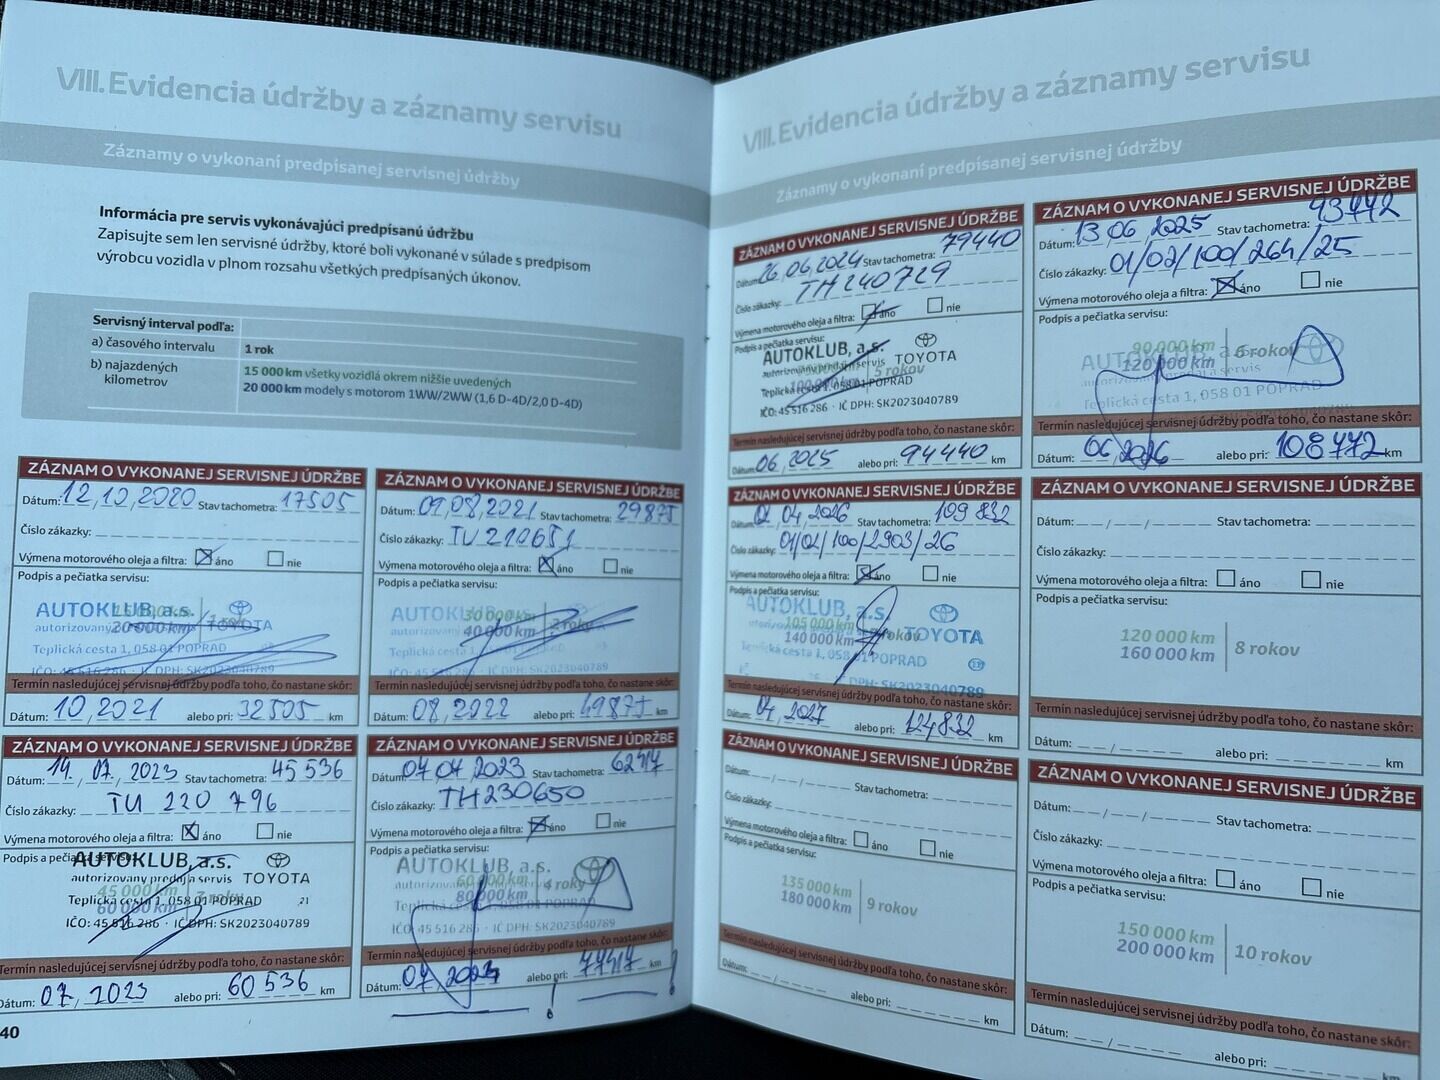 VIII. Evidencia údržby a záznamy servisu
Záznamy o vykonaní predpísanej servisnej údržby
Informácia pre servis vykonávajúci predpísanú údržbu
Zapisujte sem len servisné údržby, ktoré boli vykonané v súlade s predpisom
výrobcu vozidla v plnom rozsahu všetkých predpísaných úkonov.
Servisný interval podľa:
a) časového intervalu 1 rok
b) najazdených
kilometrov
15 000 km všetky vozidlá okrem nižšie uvedených
20 000 km modely s motorom 1WW/2WW (1,6 D-4D/2,0 D-4D)
ZÁZNAM O VYKONANEJ SERVISNEJ ÚDRŽBE
Dátum: 12, 10, 2020 Stav tachometra: 17505
Číslo zákazky:
Výmena motorového oleja a filtra: áno nie
Podpis a pečiatka servisu:
AUTOKLUB, a.s.
15 000 km
20 000 km
1 rok
autorizovaný
TOYOTA
Teplická cesta 1, 058 01 POPRAD
IČO: 45 516 286 · IČ DPH: SK2023040789
Termín nasledujúcej servisnej údržby podľa toho, čo nastane skôr:
Dátum: 10, 2021 alebo pri: 32505 km
ZÁZNAM O VYKONANEJ SERVISNEJ ÚDRŽBE
Dátum: 09, 08, 2021 Stav tachometra: 29875
Číslo zákazky: TU 210651
Výmena motorového oleja a filtra: áno nie
Podpis a pečiatka servisu:
AUTOKLUB
30 000 km
40 000 km
2 roky
autorizovaný
Teplická cesta 1, 058 01 POPRAD
IČO: 45 516 286 · IČ DPH: SK2023040789
Termín nasledujúcej servisnej údržby podľa toho, čo nastane skôr:
Dátum: 08, 2022 alebo pri: 49875 km
ZÁZNAM O VYKONANEJ SERVISNEJ ÚDRŽBE
Dátum: 14. 07, 2023 Stav tachometra: 45 536
Číslo zákazky: TU 220 796
Výmena motorového oleja a filtra: áno nie
Podpis a pečiatka servisu:
AUTOKLUB, a.s.
autorizovaný predaj a servis TOYOTA
45 000 km
60 000 km
3 roky
Teplická cesta 1, 058 01 POPRAD 21
IČO: 45 516 286 · IČ DPH: SK2023040789
Termín nasledujúcej servisnej údržby podľa toho, čo nastane skôr:
Dátum: 07, 2023 alebo pri: 60 536 km
ZÁZNAM O VYKONANEJ SERVISNEJ ÚDRŽBE
Dátum: 04 04 2023 Stav tachometra: 62417
Číslo zákazky: TH230650
Výmena motorového oleja a filtra: áno nie
Podpis a pečiatka servisu:
AUTOKLUB, a.s.
60 000 km
80 000 km
4 roky
Teplická cesta 1, 058 01 POPRAD
IČO: 45 516 286 · IČ DPH: SK2023040789
Termín nasledujúcej servisnej údržby podľa toho, čo nastane skôr:
Dátum: 04, 2024 alebo pri: 77417 km
40
VIII. Evidencia údržby a záznamy servisu
Záznamy o vykonaní predpísanej servisnej údržby
ZÁZNAM O VYKONANEJ SERVISNEJ ÚDRŽBE
Dátum: 26, 06, 2024 Stav tachometra: 79440
Číslo zákazky: TH 240729
Výmena motorového oleja a filtra: áno nie
Podpis a pečiatka servisu:
AUTOKLUB, a.s. TOYOTA
autorizovaný predaj a servis
5 rokov
Teplická cesta 1, 058 01 POPRAD
IČO: 45 516 286 · IČ DPH: SK2023040789
Termín nasledujúcej servisnej údržby podľa toho, čo nastane skôr:
Dátum: 06, 2025 alebo pri: 94440 km
ZÁZNAM O VYKONANEJ SERVISNEJ ÚDRŽBE
Dátum: 13, 06, 2025 Stav tachometra: 93772
Číslo zákazky: 01/02/100/264/25
Výmena motorového oleja a filtra: áno nie
Podpis a pečiatka servisu:
AUTOKLUB, a.s.
90 000 km
120 000 km
6 rokov
autorizovaný predaj a servis
Teplická cesta 1, 058 01 POPRAD
Termín nasledujúcej servisnej údržby podľa toho, čo nastane skôr:
Dátum: 06, 2026 alebo pri: 108772 km
ZÁZNAM O VYKONANEJ SERVISNEJ ÚDRŽBE
Dátum: 02, 04, 2026 Stav tachometra: 109 832
Číslo zákazky: 01/02/100/2903/26
Výmena motorového oleja a filtra: áno nie
Podpis a pečiatka servisu:
AUTOKLUB, a.s. TOYOTA
105 000 km
140 000 km
7 rokov
Teplická cesta 1, 058 01 POPRAD
IČ DPH: SK2023040789
Termín nasledujúcej servisnej údržby podľa toho, čo nastane skôr:
Dátum: 04, 2027 alebo pri: 124832 km
ZÁZNAM O VYKONANEJ SERVISNEJ ÚDRŽBE
Dátum: / / Stav tachometra:
Číslo zákazky:
Výmena motorového oleja a filtra: áno nie
Podpis a pečiatka servisu:
120 000 km
160 000 km
8 rokov
Termín nasledujúcej servisnej údržby podľa toho, čo nastane skôr:
Dátum: / alebo pri: km
ZÁZNAM O VYKONANEJ SERVISNEJ ÚDRŽBE
Dátum: / / Stav tachometra:
Číslo zákazky:
Výmena motorového oleja a filtra: áno nie
Podpis a pečiatka servisu:
135 000 km
180 000 km
9 rokov
Termín nasledujúcej servisnej údržby podľa toho, čo nastane skôr:
Dátum: / alebo pri: km
ZÁZNAM O VYKONANEJ SERVISNEJ ÚDRŽBE
Dátum: / / Stav tachometra:
Číslo zákazky:
Výmena motorového oleja a filtra: áno nie
Podpis a pečiatka servisu:
150 000 km
200 000 km
10 rokov
Termín nasledujúcej servisnej údržby podľa toho, čo nastane skôr:
Dátum: / alebo pri: km